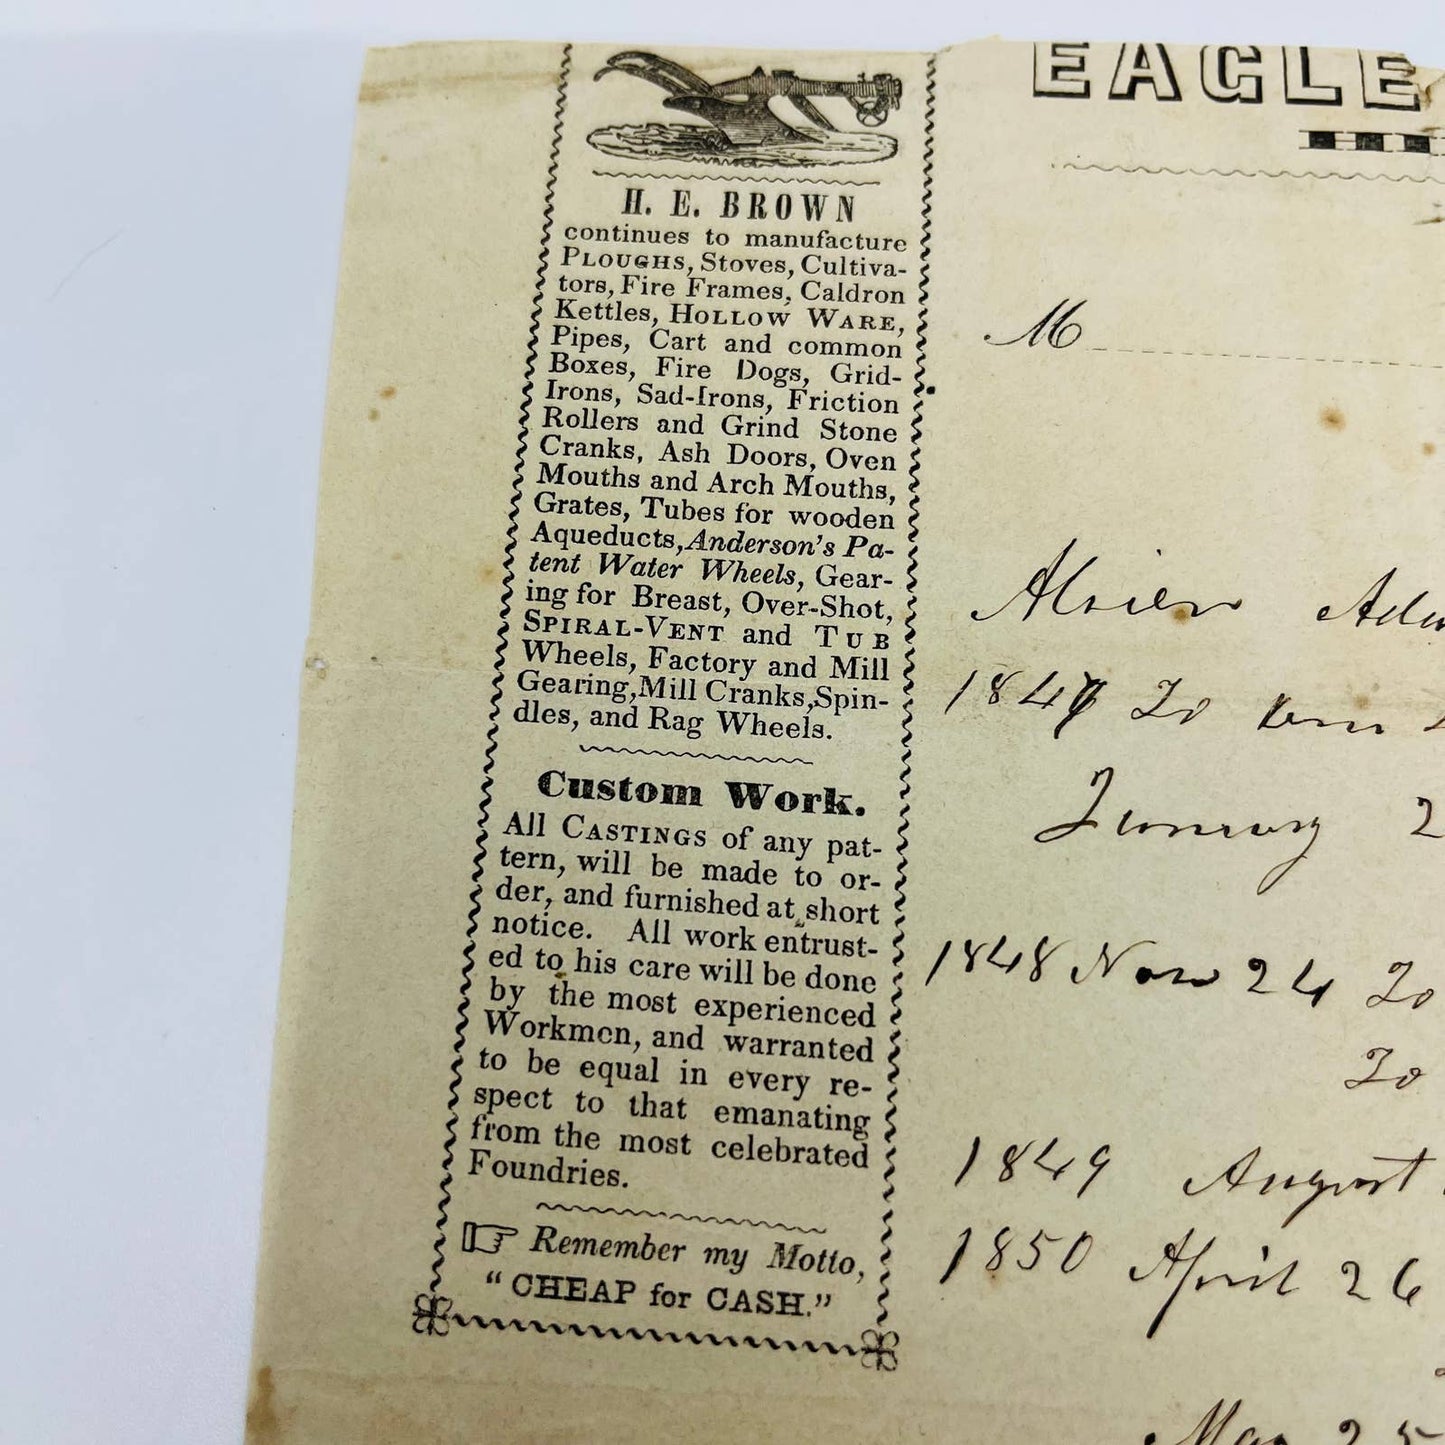 EAGLE
H. E. BROWN
continues to manufacture
PLOUGHS, Stoves, Cultiva-
tors, Fire Frames, Caldron
Kettles, HOLLOW WARE,
Pipes, Cart and common
Boxes, Fire Dogs, Grid-
Irons, Sad-Irons, Friction
Rollers and Grind Stone
Cranks, Ash Doors, Oven
Mouths and Arch Mouths,
Grates, Tubes for wooden
Aqueducts, Anderson's Pa-
tent Water Wheels, Gear-
ing for Breast, Over-Shot,
SPIRAL-VENT and TUB
Wheels, Factory and Mill
Gearing, Mill Cranks, Spin-
dles, and Rag Wheels.
Custom Work.
All CASTINGS of any pat-
tern, will be made to or-
der, and furnished at short
notice. All work entrust-
ed to his care will be done
by the most experienced
Workmen, and warranted
to be equal in every re-
spect to that emanating
from the most celebrated
Foundries.
☞ Remember my Motto,
"CHEAP for CASH."
M
1847 To
1848 Nov 24 To
To
1849 August
1850 April 26
May 25